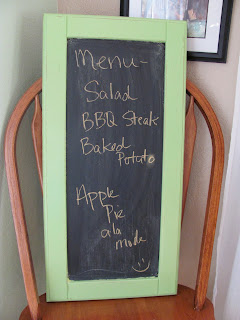 Menu-
Salad
BBQ Steak
Baked
Potato
Apple
Pie
ala
mode